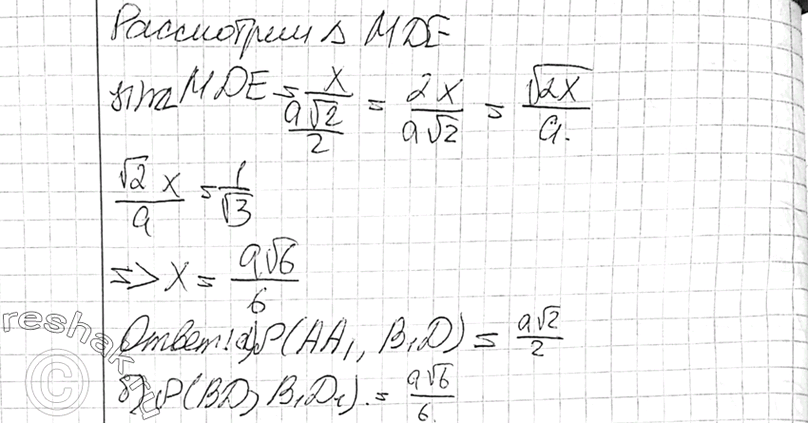 Рассмотрим Δ MDE
sin∠MDE = x / (a√2 / 2) = 2x / a√2 = √2x / a.
√2 x / a = 1 / √3
=> x = a√6 / 6
Ответ: а) P(AA₁, B₁D) = a√2 / 2
б) P(BD, B₁D₁) = a√6 / 6.
reshak.ru